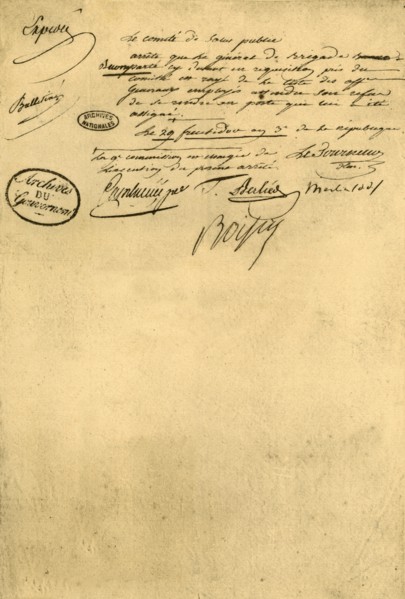 Le comité de Salut public
arrête que le général de Brigade
Buonaparte cy devant en requisition près du
comité est rayé de la liste des off.
Generaux employés attendu son refus
de se rendre au poste qui lui a été
assigné.
Le 29 fructidor an 3e de la République
La 9e commission est chargée de
l'execution du présent arrêté
Le Tourneur
Cambacérès
T. Berlier
Merlin
Boissy
ARCHIVES
NATIONALES
Archives
DU
Gouvernem